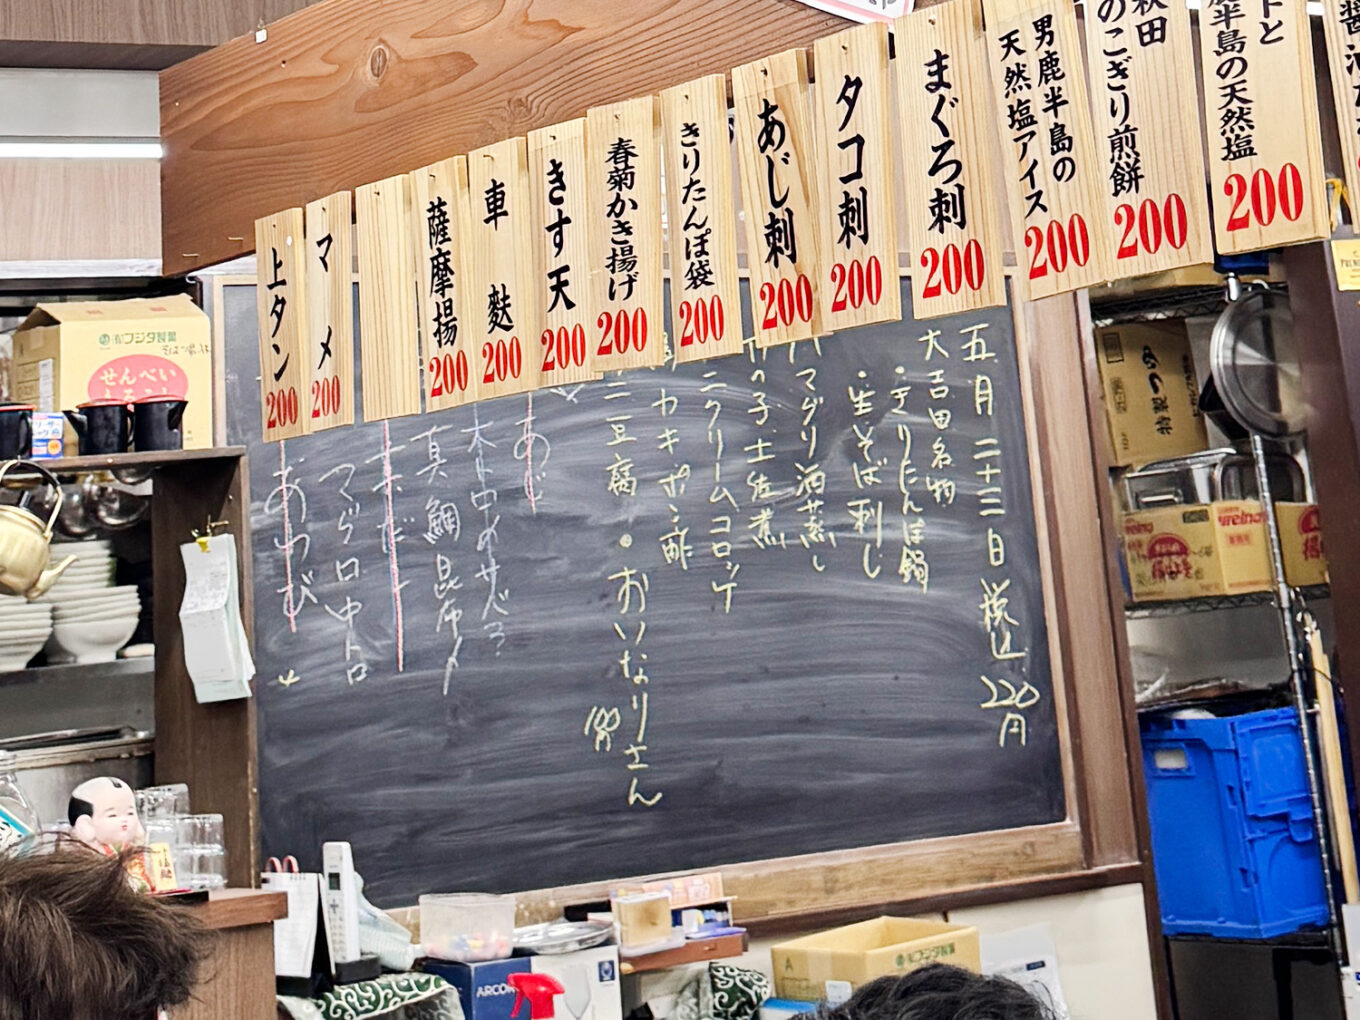 男鹿半島の
天然塩アイス
200
のこぎり煎餅
200
半島の天然塩
200
まぐろ刺
200
タコ刺
200
あじ刺
200
きりたんぽ袋
200
春菊かき揚げ
200
きす天
200
車麩
200
薩摩揚
200
マメ
200
上タン
200
五月二十三日 税込220円
大吉田名物
・きりたんぽ鍋
・生そば刺し
ハマグリ酒蒸し
竹の子土佐煮
カニクリームコロッケ
カキポン酢
豆腐・おいなりさん
あじ
真鯛昆布〆
マグロ中トロ
せんべい
フジタ製菓
フジタ製菓
ARCOROC